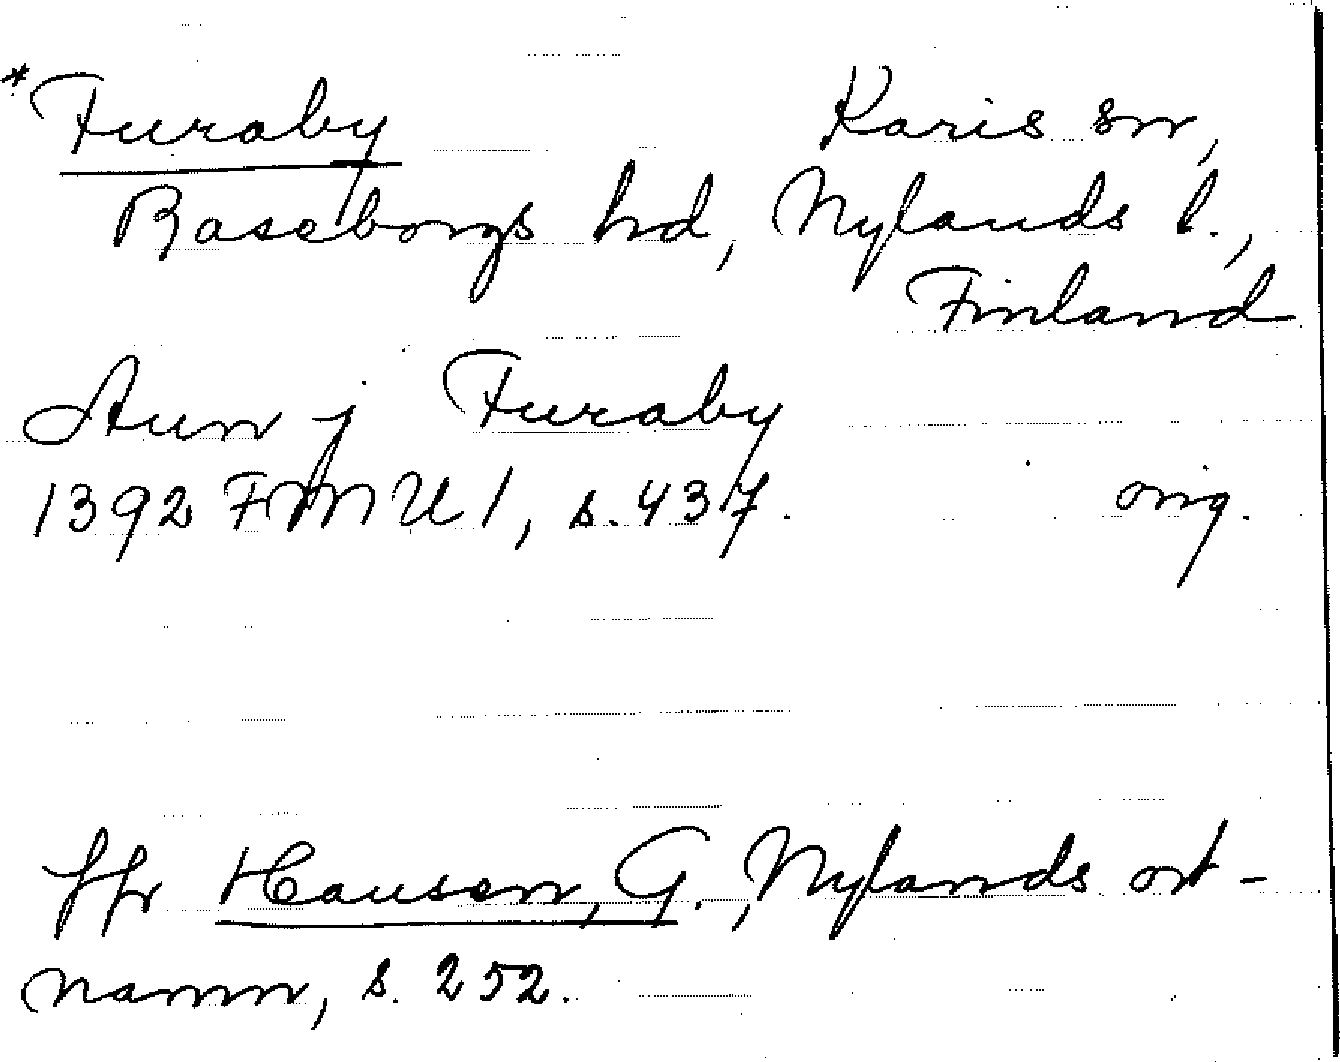 *Furaby Karis sn,
Raseborgs hd, Nylands l.,
Finland
Aun j Furaby
1392 FMU 1, s. 437. orig.
Jfr Hausen, G., Nylands ort-
namn, s. 252.